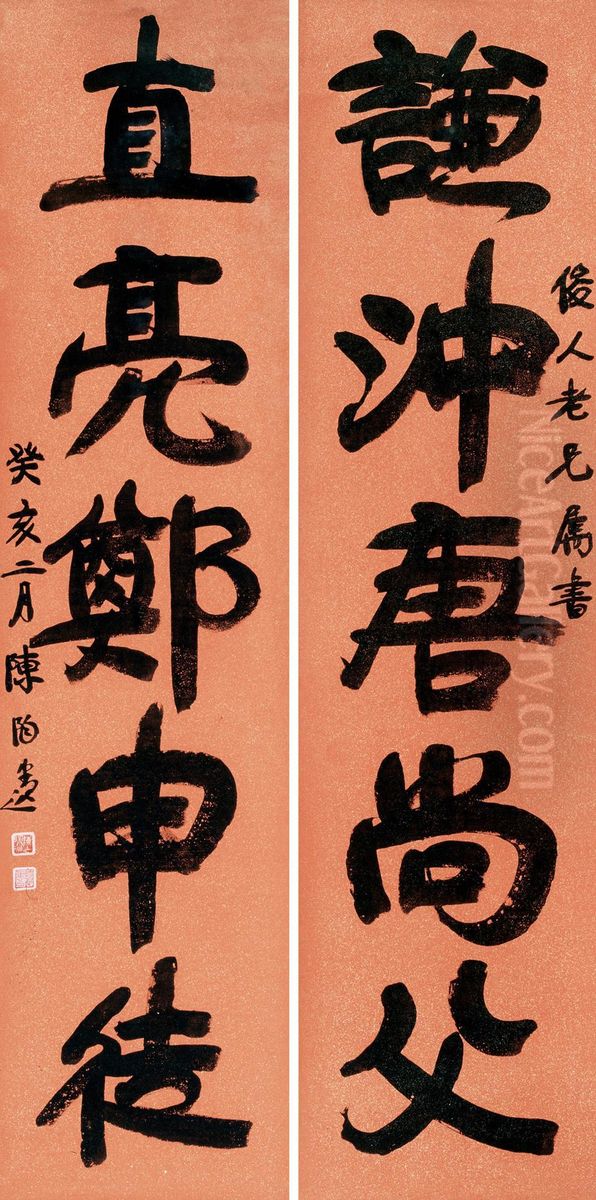 俊人老兄属書
謙沖唐尚父
直亮鄭申徒
癸亥二月陳陶遺
NiceArtGallery.com